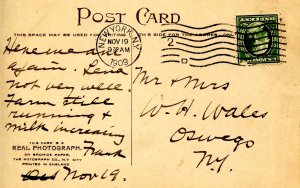 POST CARD
THIS SPACE MAY BE USED
NEW YORK, N.Y.
NOV 19
1909
2
Here we are
again. Lena
not very well.
Farm still
running +
milk increasing
Frank
Nov 19.
THIS CARD IS A
REAL PHOTOGRAPH.
ON BROMIDE PAPER.
THE ROTOGRAPH CO., N.Y. CITY
PRINTED IN ENGLAND
Mr + Mrs
W. H. Wales
Oswego
N.Y.